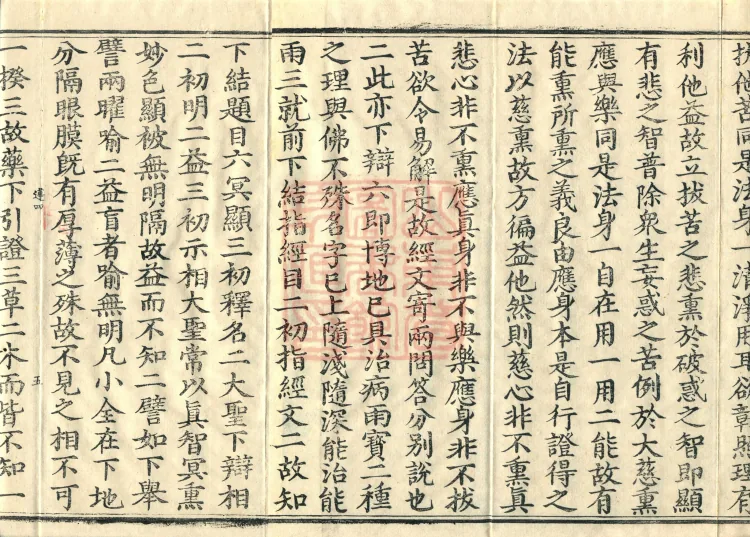 扶他苦同是法身一清淨用耳欲彰照理有
利他益故立拔苦之悲熏於破惑之智即顯
有悲之智普除衆生妄惑之苦例於大慈熏
應與樂同是法身一自在用一用二能故有
能熏所熏之義良由應身本是自行證得之
法以慈熏故方徧益他然則慈心非不熏眞
悲心非不熏應眞身非不與樂應身非不拔
苦欲令易解是故經文寄兩問答分別說也
二此亦下辯六即博地已具治病雨寶二種
之理與佛不殊名字已上隨淺隨深能治能
雨三就前下結指經目二初指經文二故知
下結題目六冥顯三初釋名二大聖下辯相
二初明二益三初示相大聖常以眞智冥熏
妙色顯被無明隔故益而不知二譬如下舉
譬兩曜喻二益盲者喻無明凡小全在下地
分隔眼膜旣有厚薄之殊故不見之相不可
一揆三故藥下引證三草二木而皆不知一
五